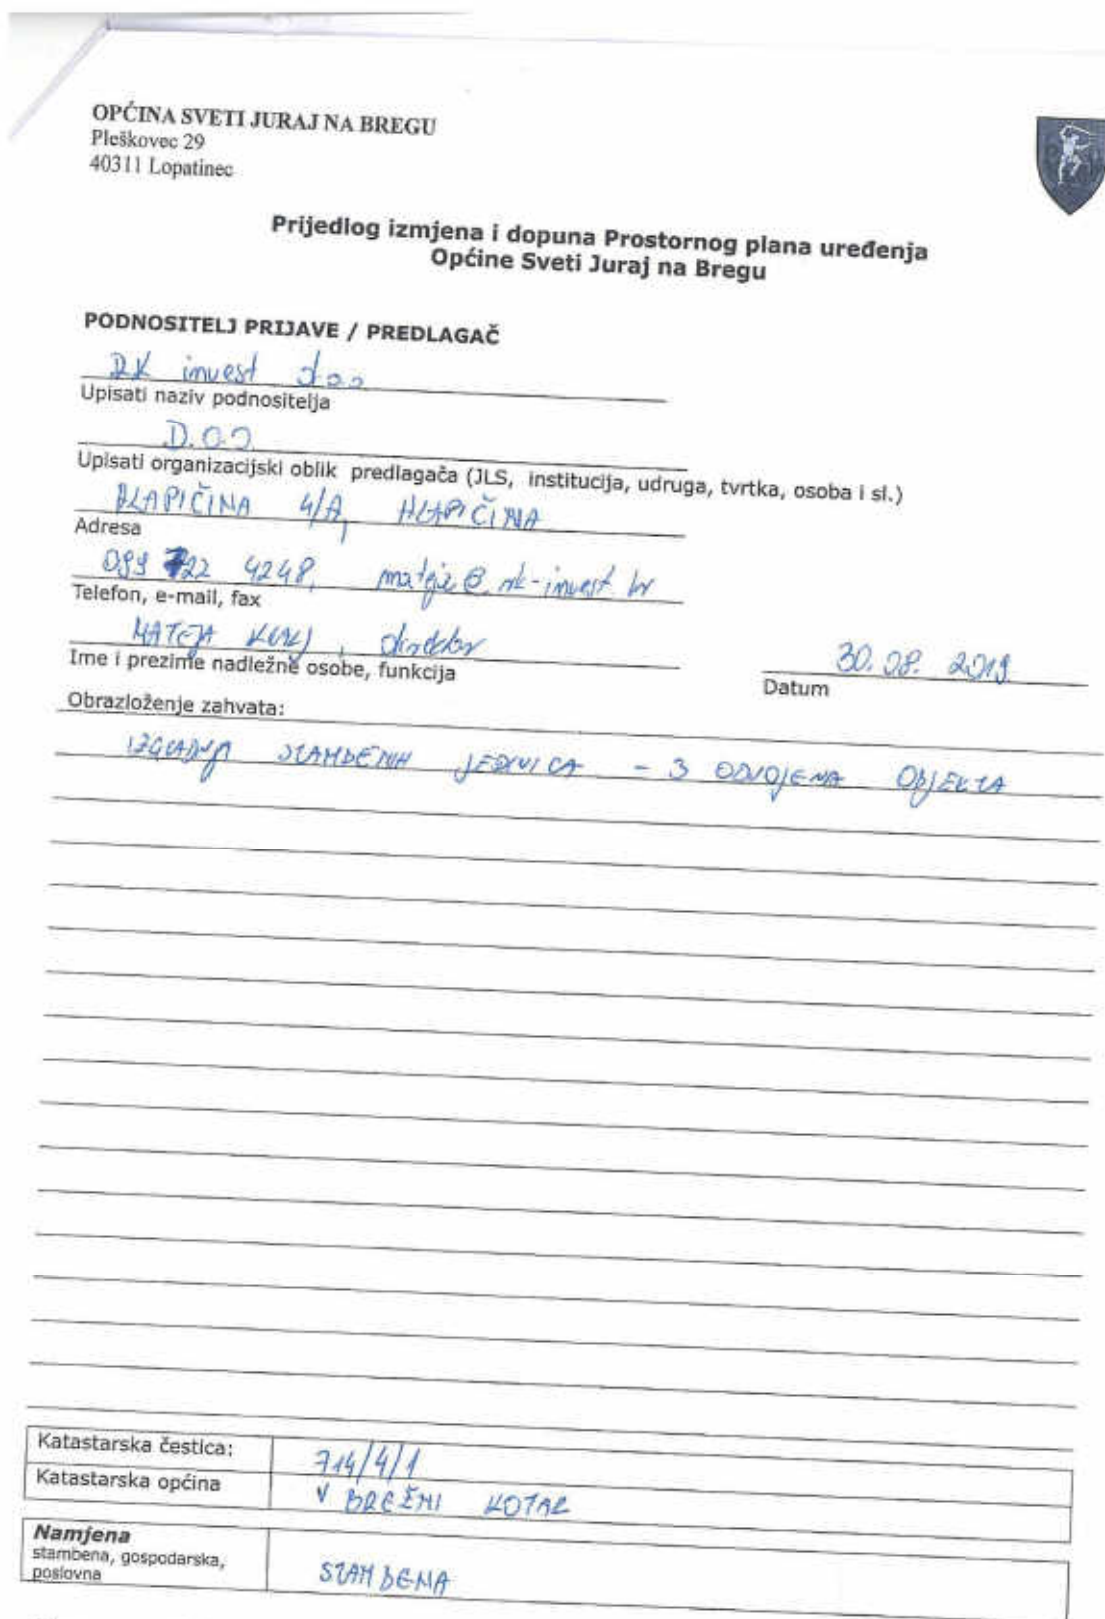 OPĆINA SVETI JURAJ NA BREGU
Pleškovec 29
40311 Lopatinec
Prijedlog izmjena i dopuna Prostornog plana uređenja
Općine Sveti Juraj na Bregu
PODNOSITELJ PRIJAVE / PREDLAGAČ
invest d.o.o
Upisati naziv podnositelja
D.O.O.
Upisati organizacijski oblik predlagača (JLS, institucija, udruga, tvrtka, osoba i sl.)
HLAPIČINA 4/A, HLAPIČINA
Adresa
099 722 4248,
Telefon, e-mail, fax
MATEJA direktor
Ime i prezime nadležne osobe, funkcija
30.08. 2019.
Datum
Obrazloženje zahvata:
IZGRADNJA STAMBENIH JEDINICA - 3 ODVOJENA OBJEKTA
Katastarska čestica: 714/4/1
Katastarska općina V BREŽNI KOTAR
Namjena
stambena, gospodarska,
poslovna
STAMBENA